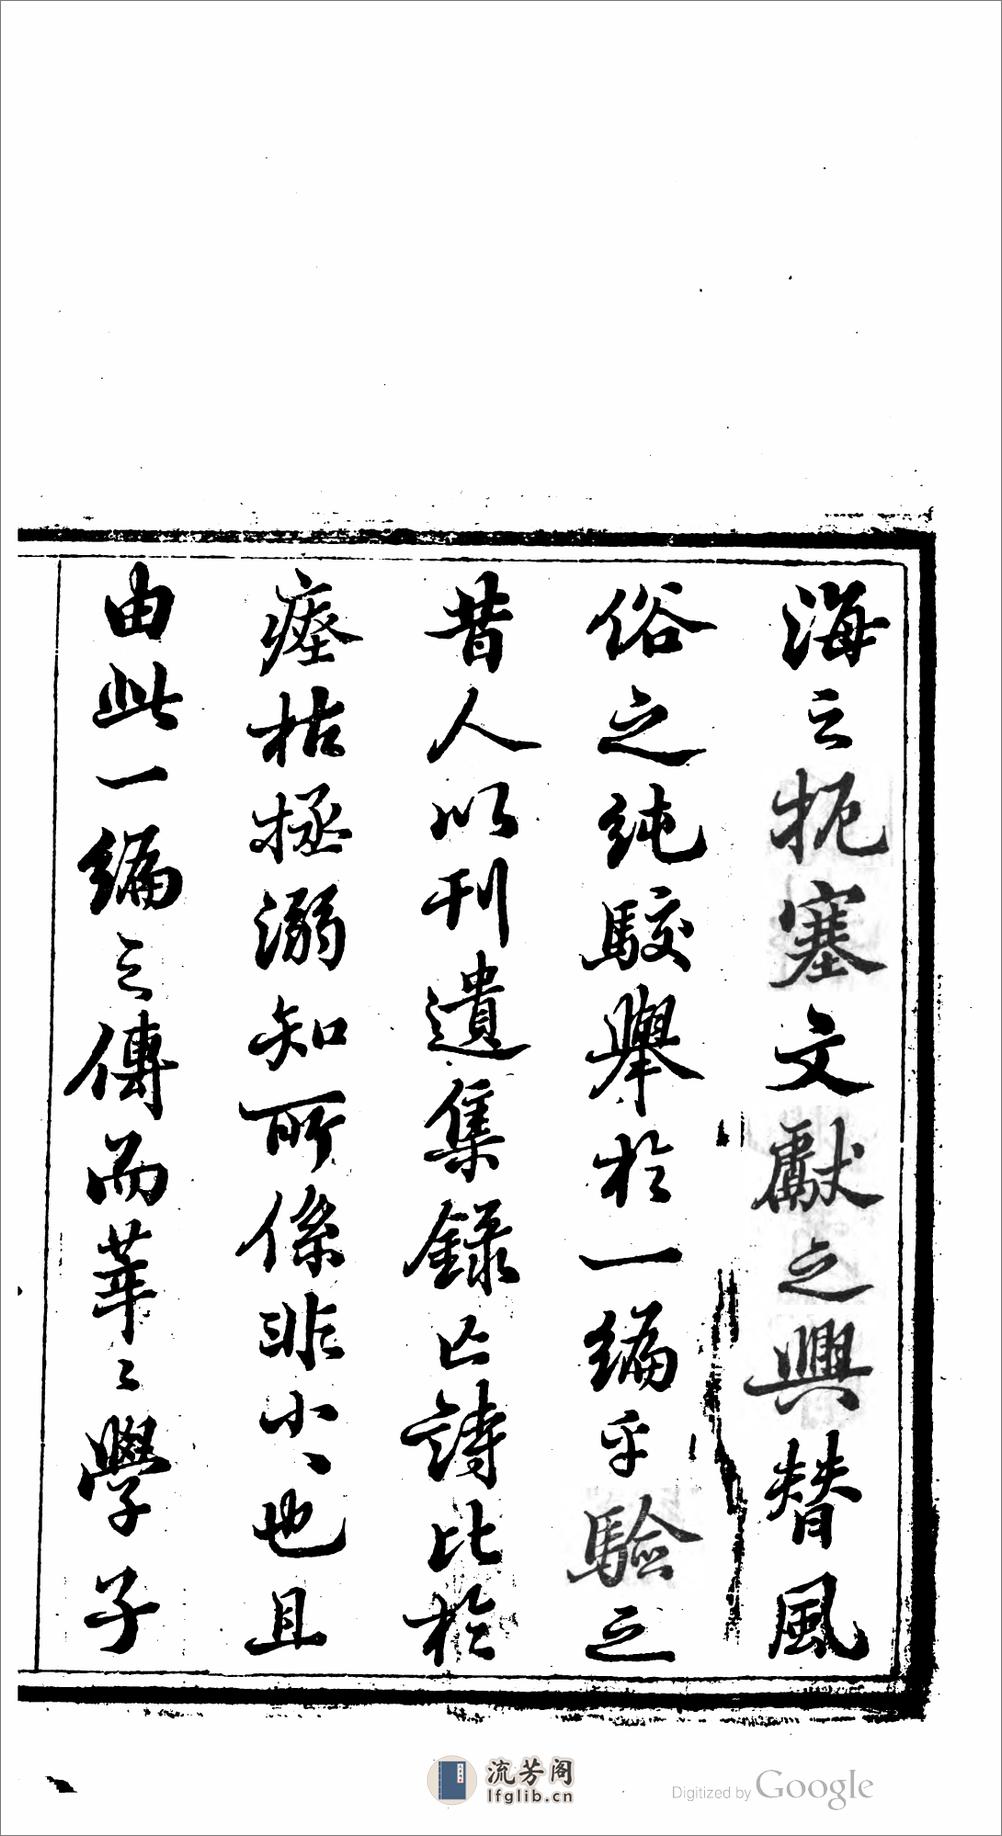 海之扼塞文獻之興替風
俗之純駁舉於一編乎驗之
昔人以刊遺集錄亡詩比於
瘞枯拯溺知所係非小小也且
由此一編之傳而莘莘學子
流芳阁
lfglib.cn
Digitized by Google